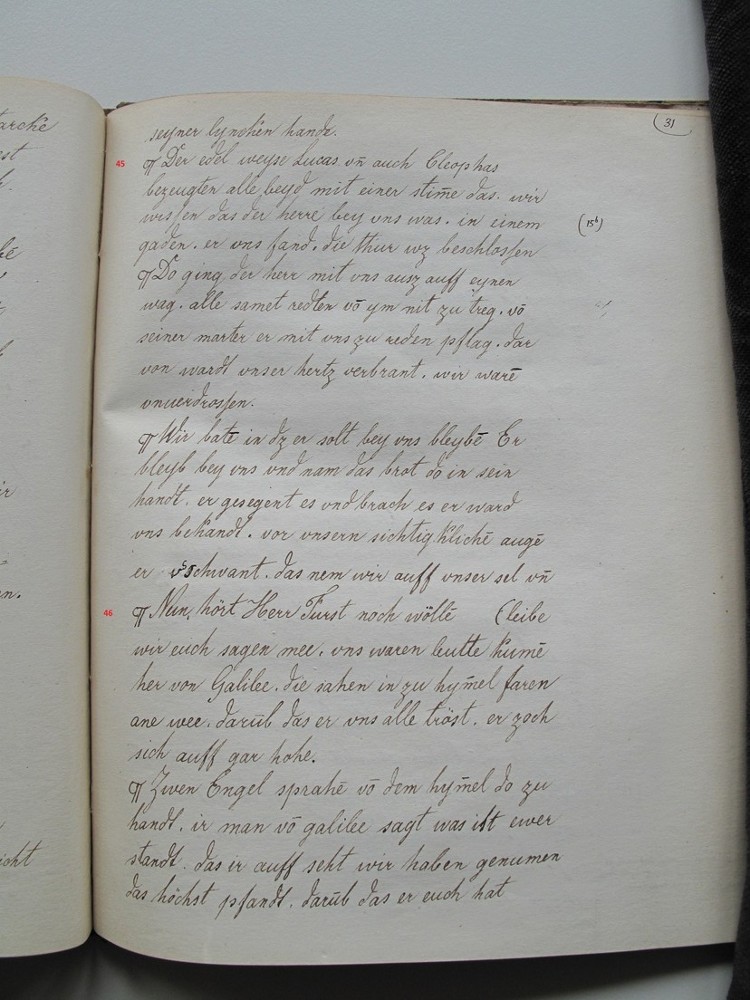 31
seyner lynchen handt.
45 ¶ Der edel weyse Lucas. vn̄ auch Cleophas
bezeugten alle beyd mit einer stim̄e das. wir
wissen das der herre bey vns was. in einem (15b)
gaden. er vns fand. die thur wz beschlossen
¶ Do ging der herr mit vns ausz auff eynen
wag. alle samet redten vō ym nit zu treg. vō
seiner marter er mit vns zu reden pflag. dar
von wardt vnser hertz verbrant. wir warē
vnuerdrossen.
¶ Wir batē in dz er solt bey vns bleybē Er
bleyb bey vns vnd nam das brot do in sein
handt. er gesegent es vnd brach es er ward
vns bekandt. vor vnsern sichtigklichē augē
er vschwant. das nem wir auff vnser sel vn̄
46 ¶ Nun, hört Herr Fürst noch wöllē (leibe
wir euch sagen mee. vns waren leutte kumē
her von Galilee. die sahen in zu hym̄el faren
ane wee. darūb das er vns alle tröst. er zoch
sich auff gar hohe.
¶ Zwen Engel sprahē vō dem hym̄el do zu
handt. ir man vō galilee sagt was ist ewer
standt. das ir auff seht wir haben genumen
das höchst pfandt. darūb das er euch hat
arche
est
en.
icht